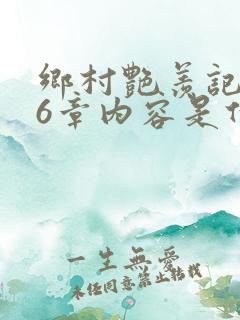 鄉村艷羨記
6章内容是什
一生無愛
未经同意禁止转载